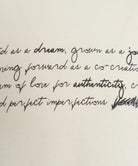 as a dream, grown as a
forward as a co-creati
of love for authenticity,
perfect imperfections